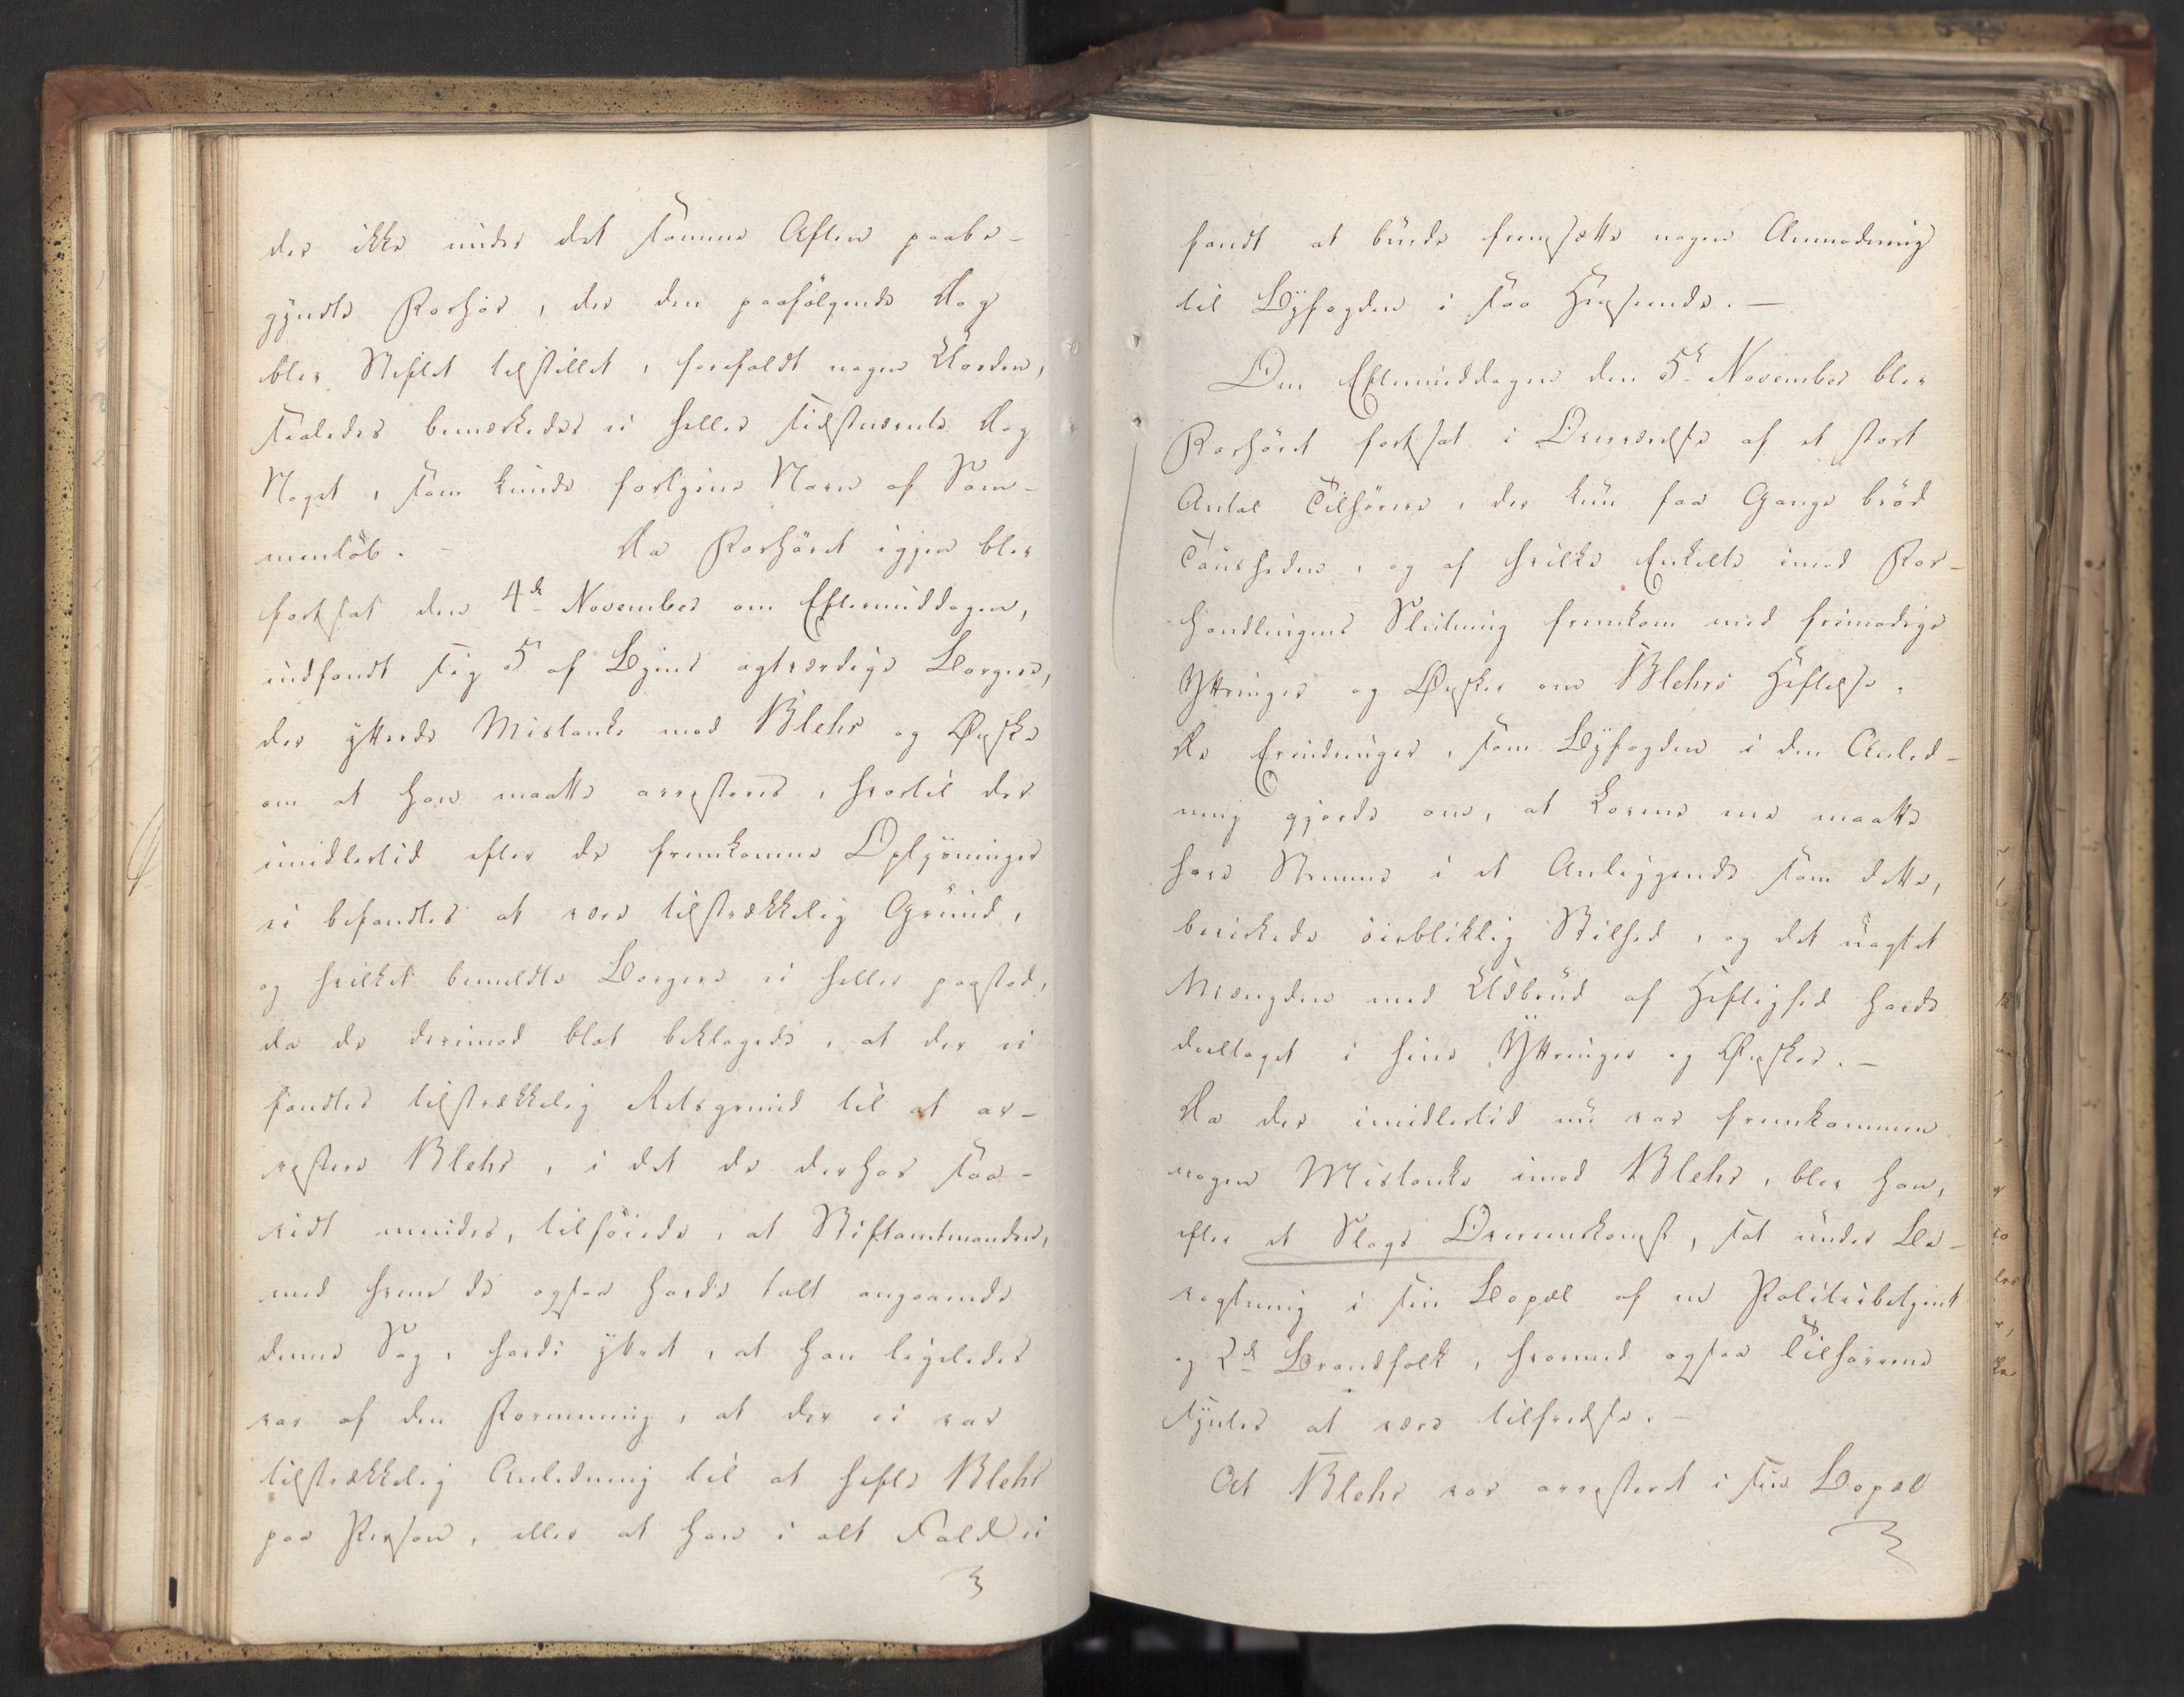 der ikke under det samme Aften paabe-
gyndte Forhør, der den paafølgende Dag
blev Stiftet tilstillet, forefaldt nogen Uorden,
saaledes bemærkedes ei heller sidstnævnte Dag
Noget, som kunde fortjene Navn af Sam-
menløb. – Da Forhøret igjen blev
fortsat den 4de November om Eftermiddagen,
indfandt sig 5 af Byens agtværdige Borgere,
der yttrede Mistanke mod Blehr og Ønske
om at han maatte arresteres, hvortil der
imidlertid efter de fremkomne Oplysninger
ei befandtes at være tilstrækkelig Grund,
og hvilket bemeldte Borgere ei heller paastod,
da de derimod blot beklagede, at der ei
fandtes tilstrækkelig Retsgrund til at ar-
restere Blehr, i det de derhos saa-
vidt mindes, tilføiede, at Stiftamtmanden,
med hvem de ogsaa havde talt angaaende
denne Sag, havde yttret, at han ligeledes
var af den Formening, at der ei var
tilstrækkelig Anledning til at hefte Blehr
paa Person, eller at han i alt Fald ei
fandt at burde fremsætte nogen Anmodning
til Byfogden i saa Henseende. –
Om Eftermiddagen den 5te November blev
Forhøret fortsat i Overværelse af et stort
Antal Tilhørere, der kun faa Gange brød
Taushedn, og af hvilke Enkelte imod For-
handlingens Slutning fremkom med frimodige
Yttringer og Ønsker om Blehrs Heftelse.
De Erindringer, som Byfogden i den Anled-
ning gjorde om, at Lovene ene maatte
have Stemme i et Anliggende som dette,
bevirkede øiebliklig Stilhed, og det uagtet
Mængden med Udbrud af Heftighed havde
deeltaget i hine Yttringer og Ønsker. –
Da der imidlertid nu var fremkommen
nogen Mistanke imod Blehr, blev han,
efter et Slags Overeenskomst, sat under Be-
vogtning i sin Bopæl af en Politiebetjent
og 2de Brandfolk, hvormed ogsaa Tilhørerne
syntes at være tilfredse. –
At Blehr var arresteret i sin Bopæl